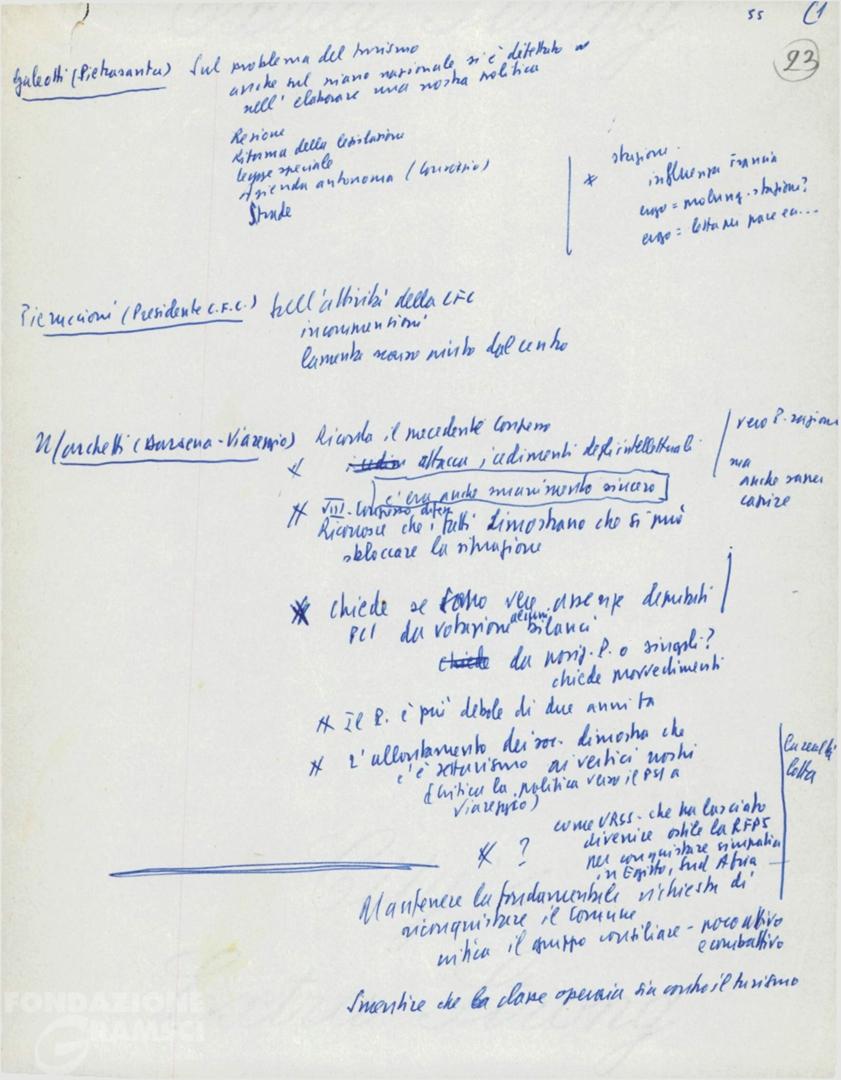 55
23
Galeotti (Pietrasanta) Sul problema del turismo
anche sul piano nazionale si è difettato
nell'elaborare una nostra politica
Regione
Riforma della legislazione
legge speciale
Azienda autonoma (Consorzio)
Strade
* stagione
influenza Francia
ergo = prolung. stagioni?
ergo = lotta per pace ecc...
Pieruccioni (Presidente C.F.C.) Sull'attività della CFC
incomprensioni
lamenta scarso aiuto dal centro
Marchetti (Darsena - Viareggio) Ricorda il precedente Congresso
* attacca i cedimenti degli intellettuali
c'era anche smarrimento sincero
* VIII Congresso
Riconosce che i fatti dimostrano che si può
sbloccare la situazione
vero P. reagisca
ma
anche saper
capire
* Chiede se sono vere assenze deputati
PCI da votazione alcuni bilanci
chiede da posiz. P. o singoli?
chiede provvedimenti
* Il P. è più debole di due anni fa
* L'allontamento dei soc. dimostra che
c'è settarismo ai vertici nostri
(critica la politica verso il PSI a
Viareggio)
La realtà
lotta
* ? come URSS - che ha lasciato
divenire ostile la
per conquistare simpatia
in Egitto, Sud Africa
Mantenere la fondamentale richiesta di
riconquistare il Comune
critica il gruppo consiliare - poco attivo
e combattivo
Smentire che la classe operaia sia contro il turismo
FONDAZIONE
GRAMSCI